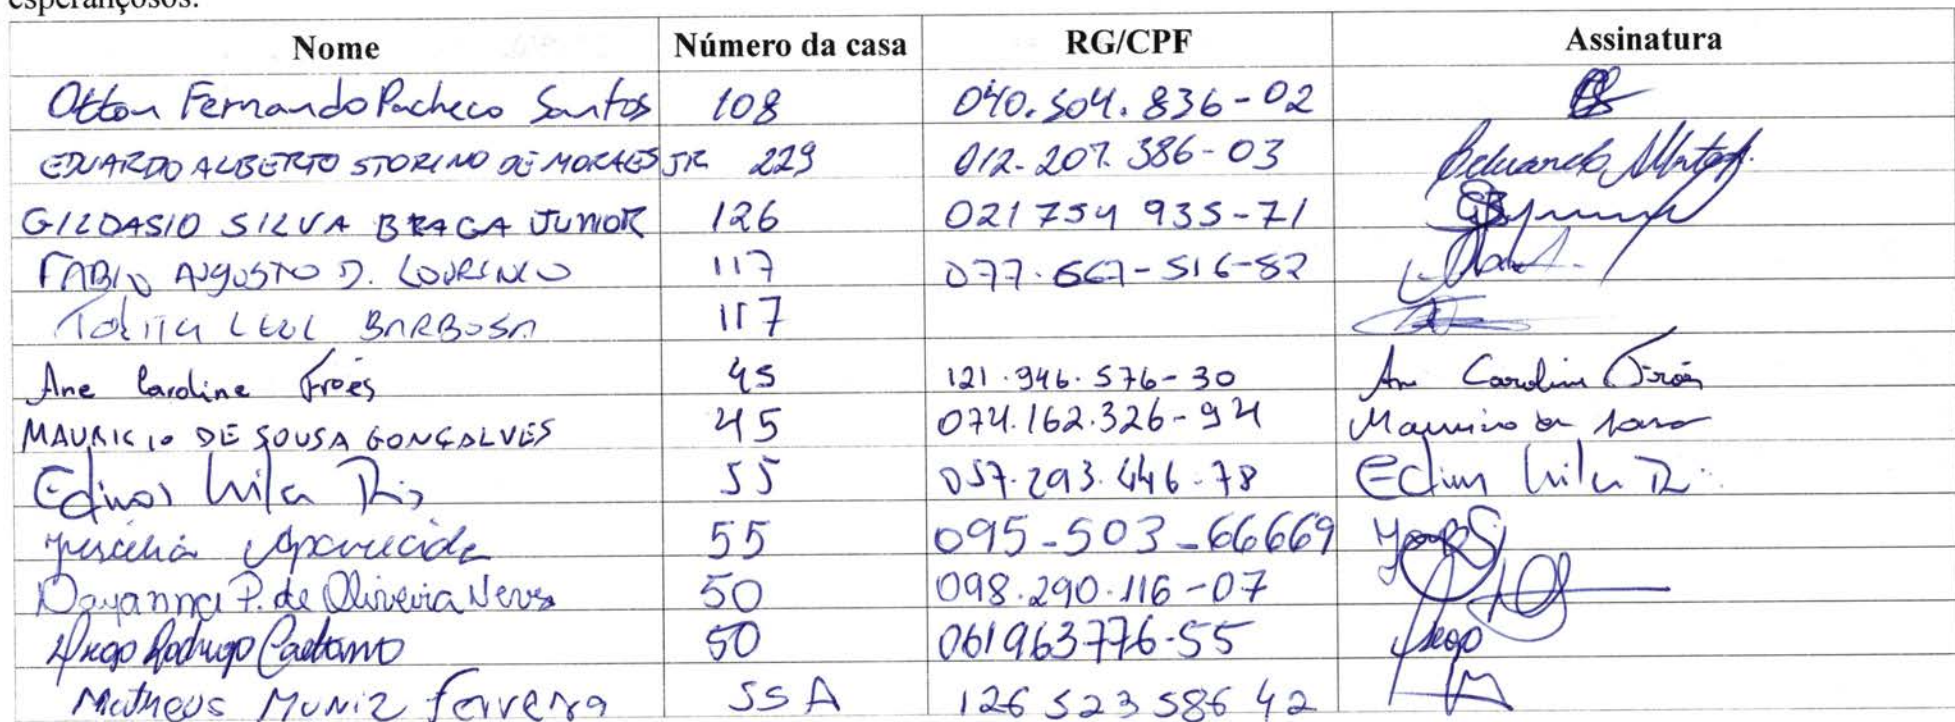 esperançosos.
Nome Número da casa RG/CPF Assinatura
Otton Fernando Pacheco Santos 108 040.504.836-02
EDUARDO ALBERTO STORINO DE MORAES JR 229 012-207.386-03 Eduardo
GILDASIO SILVA BRAGA JUNIOR 126 021754 935-71
FABIO AUGUSTO D. LOURENCO 117 077.667-516-82
BARBOSA 117
Ane Caroline Froes 45 121.946.576-30 Caroline Froes
MAURICIO DE SOUSA GONÇALVES 45 074.162.326-94
55 057.293.446-78
Aparecida 55 095-503-66669
Dayanna P. de Oliveira Neves 50 098.290.116-07
Diego Rodrigo Caetano 50 061963776-55 Diego
Matheus Muniz Ferreira 55A 126 523 586 42